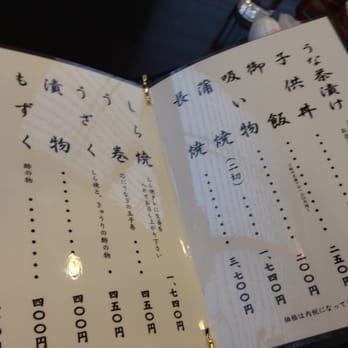 うな茶漬け
子供丼
御飯 二五〇
吸い物 二〇〇円
蒲焼(二切) 一、七四〇円
長焼 三、七〇〇円
価格は内税になって
しら焼 一、七四〇円
う巻 芯にうなぎの玉子巻 四五〇円
うざく しら焼と、きゅうりの酢の物 四五〇円
漬物 四〇〇円
もずく 酢の物 四〇〇円